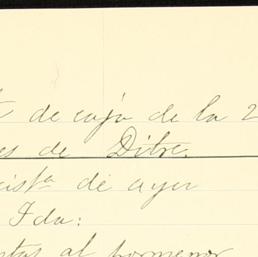 de caja de la 2
es de Dilve.
cista de ayer
Ida:
ntas al pormenor